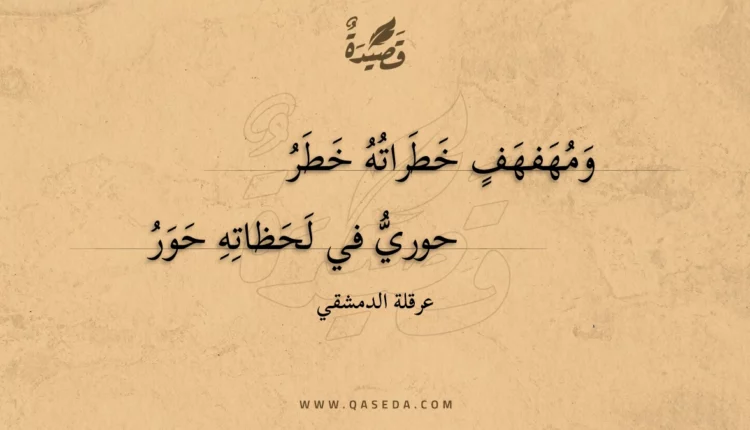 قَصِيدَةٌ
وَمُهَفهَفٍ خَطَراتُهُ خَطَرُ
حوريُّ في لَحَظاتِهِ حَوَرُ
عرقلة الدمشقي
WWW.QASEDA.COM